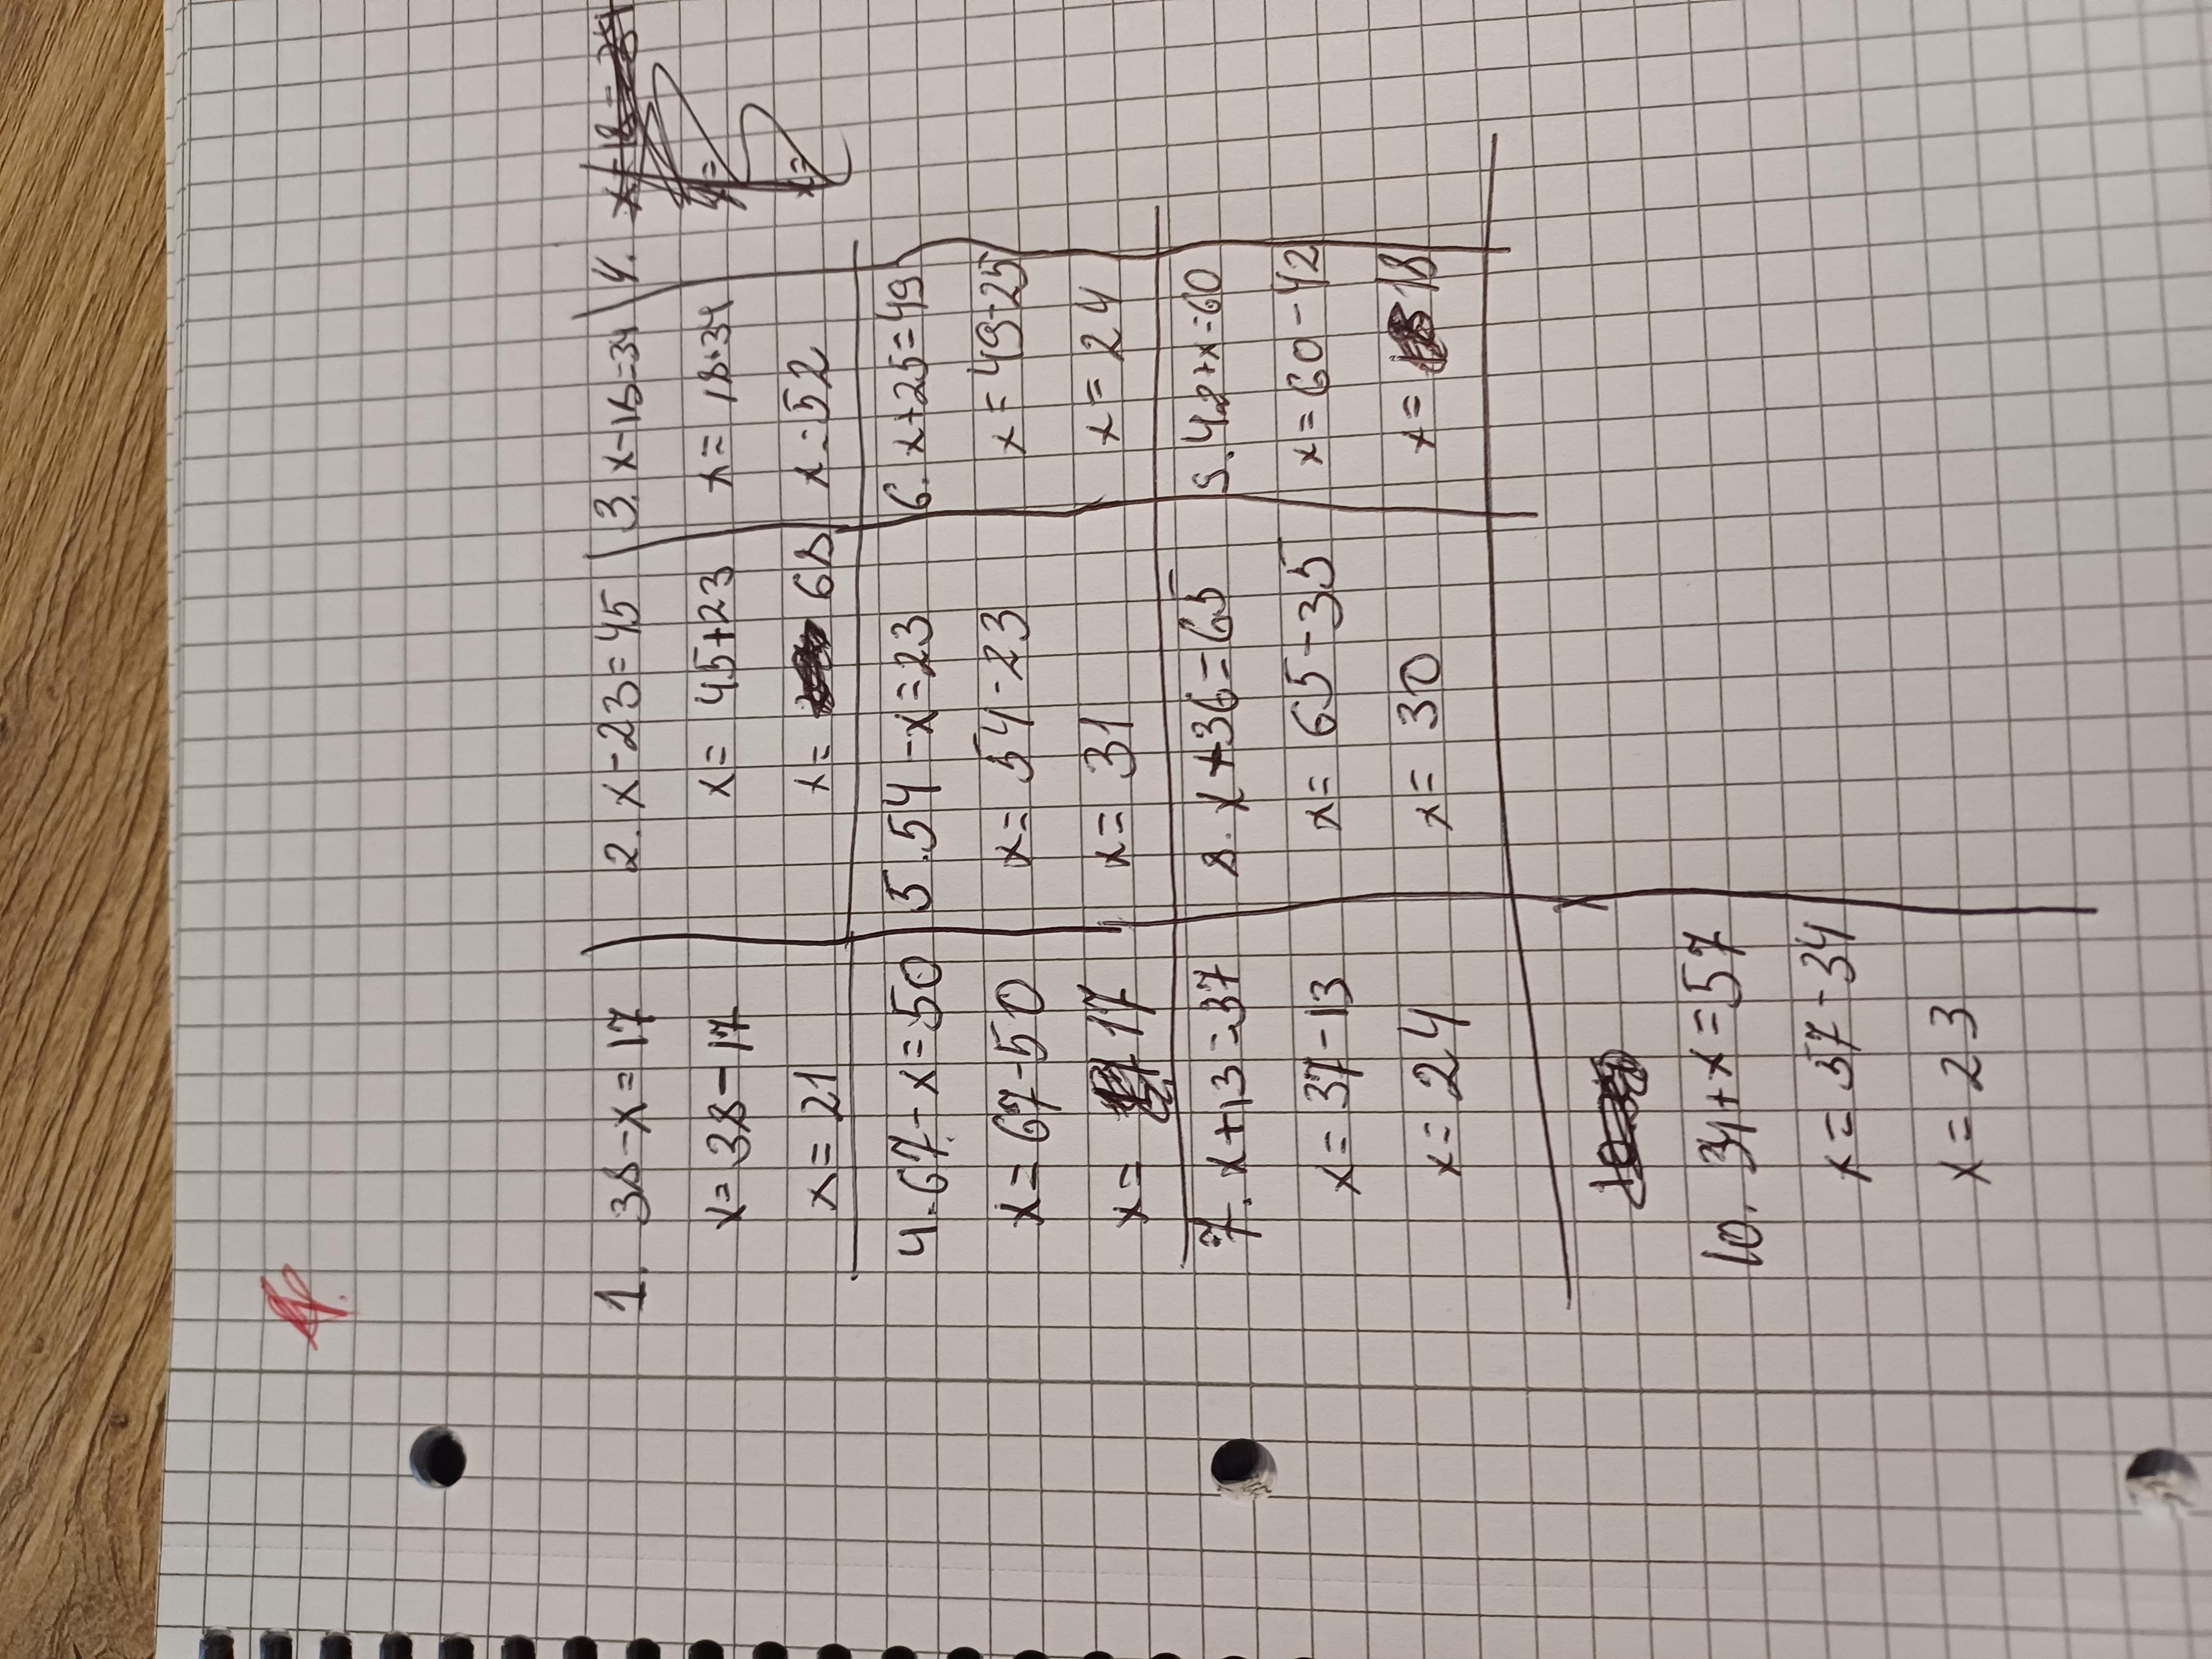 1. 38-x=17
x=38-17
x=21
2. x-23=45
x=45+23
x= 68
3. x-18=34
x=18+34
x=52
4.
4. 67-x=50
x=67-50
x= 17
5. 54-x=23
x=54-23
x=31
6. x+25=49
x=49-25
x=24
7. x+13=37
x=37-13
x=24
8. x+36=65
x=65-35
x=30
9. 42+x=60
x=60-42
x= 18
10. 34+x=57
x=57-34
x=23